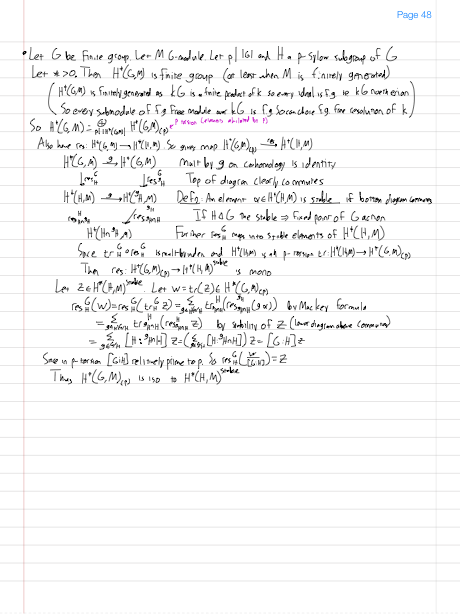 Page 48
• Let G be Finite group. Let M G-module. Let p | |G| and H a p-Sylow subgroup of G
Let * > 0. Then H*(G,M) is finite group (at least when M is finitely generated)
(H*(G,M) is finitely generated as kG is a finite product of k so every ideal is f.g. ie kG noetherian
So every submodule of f.g free module over kG is f.g so can choose f.g. free resolution of k)
So H*(G,M) = ⊕ p||H*(G,M)| H*(G,M)(p)
Also have res: H*(G,M) → H*(H,M) So gives map H*(G,M)(p) → res H*(H,M)
H*(G,M) →g H*(G,M) Mult by g on cohomology is identity
↓res G H ↓res G gH Top of diagram clearly commutes
H*(H,M) →g H*(gH,M) Defn: An element α∈H*(H,M) is stable if bottom diagram commutes
res H H∩gH ↙res gH H∩gH If H◁G then stable ⇒ fixed point of G action
H*(H∩gH,M) Further res G H maps into stable elements of H*(H,M)
Since tr G H ∘ res G H is mult by index and H*(H,M) is all p-torsion tr: H*(H,M) → H*(G,M)(p)
Then res: H*(G,M)(p) → H*(H,M)stable is mono
Let z∈H*(H,M)stable. Let w=tr(z)∈H*(G,M)(p)
res G H(w) = res G H(tr G H z) = Σ tr H H∩gH(res gH H∩gH(gz)) by Mackey formula
= Σ tr H H∩gH(res H H∩gH z) by stability of z (lower diagram above commutes)
= Σ [H:gH∩H] z = (Σ [H:gH∩H]) z = [G:H] z
Since in p-torsion [G:H] relatively prime to p. So res G H(w/[G:H]) = z
Thus H*(G,M)(p) is iso to H*(H,M)stable